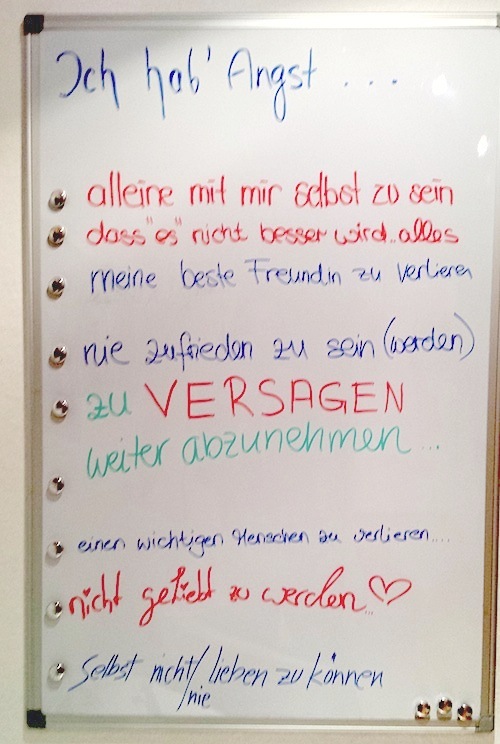 Ich hab' Angst ...
alleine mit mir selbst zu sein
dass "es" nicht besser wird..alles
meine beste Freundin zu verlieren
nie zufrieden zu sein (werden)
zu VERSAGEN
weiter abzunehmen...
einen wichtigen Menschen zu verlieren....
nicht geliebt zu werden...♡
Selbst nicht/ lieben zu können
/nie